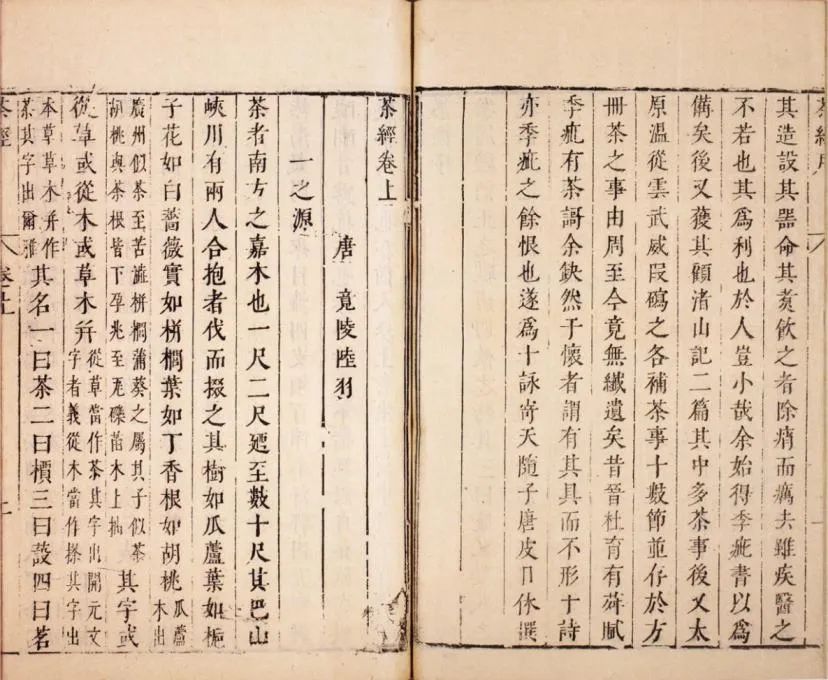 茶經序
其造設其器命其煮飲之者除痟而癘去雖疾醫之
不若也其為利也於人豈小哉余始得季疵書以為
備矣後又獲其顧渚山記二篇其中多茶事後又太
原溫從雲武威段碣之各補茶事十數節並存於方
冊茶之事由周至今竟無纖遺矣昔晉杜育有荈賦
季疵有茶謌余缺然于懷者謂有其具而不形于詩
亦季疵之餘恨也遂為十詠寄天隨子唐皮日休譔
茶經卷上
唐 竟陵陸羽
一之源
茶者南方之嘉木也一尺二尺廼至數十尺其巴山
峽川有兩人合抱者伐而掇之其樹如瓜蘆葉如梔
子花如白薔薇實如栟櫚葉如丁香根如胡桃瓜蘆木出
廣州似茶至苦澁栟櫚蒲葵之屬其子似茶胡桃與茶根皆下孕兆至瓦礫苗木上抽其字或
從草或從木或草木并從草當作茶其字出開元文字者義從木當作搽其字出
本草草木并作荼其字出爾雅其名一曰茶二曰檟三曰蔎四曰茗
茶經 卷上 一